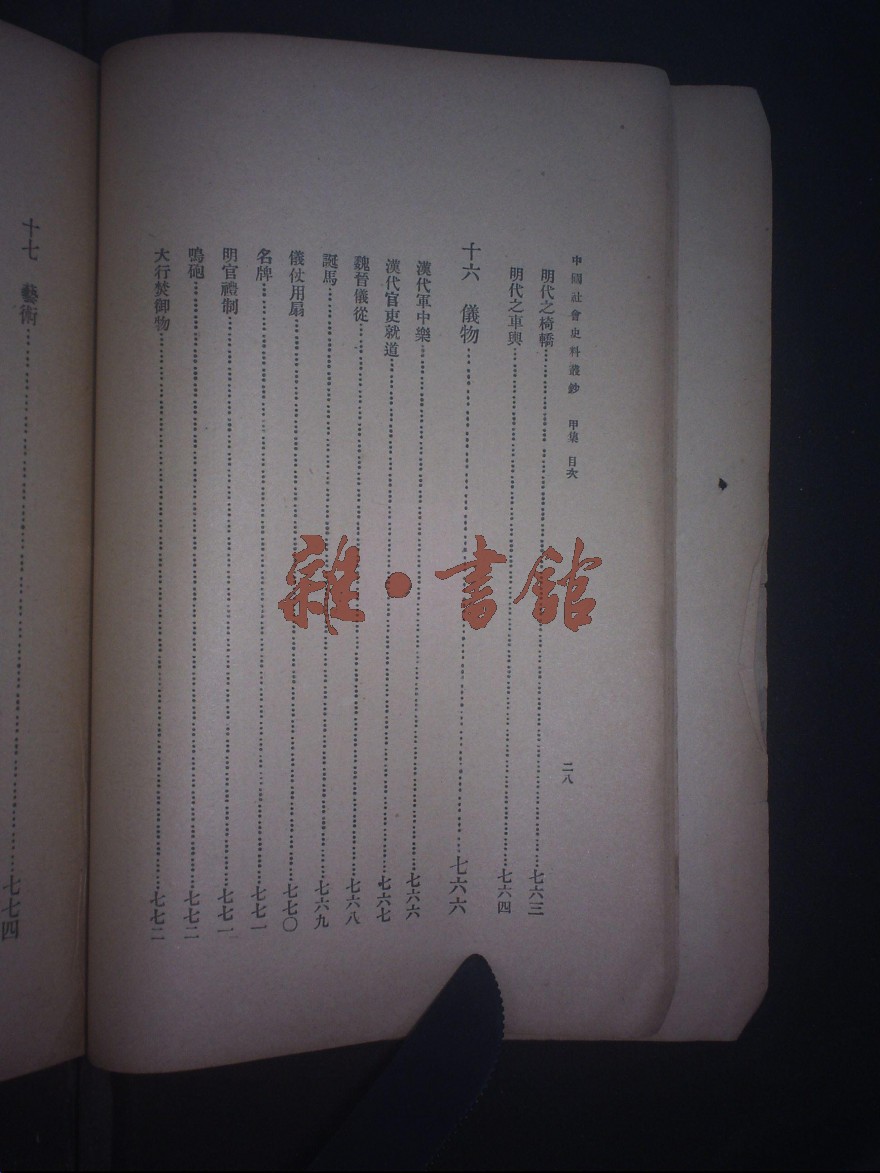 中國社會史料叢鈔 甲集 目次
二八
明代之椅轎……七六三
明代之車輿……七六四
十六 儀物……七六六
漢代軍中樂……七六六
漢代官吏就道……七六七
魏晉儀從……七六八
誕馬……七六九
儀仗用扇……七七〇
名牌……七七一
明官禮制……七七一
鳴砲……七七二
大行焚御物……七七二
十七 藝術……七七四
雜·書館